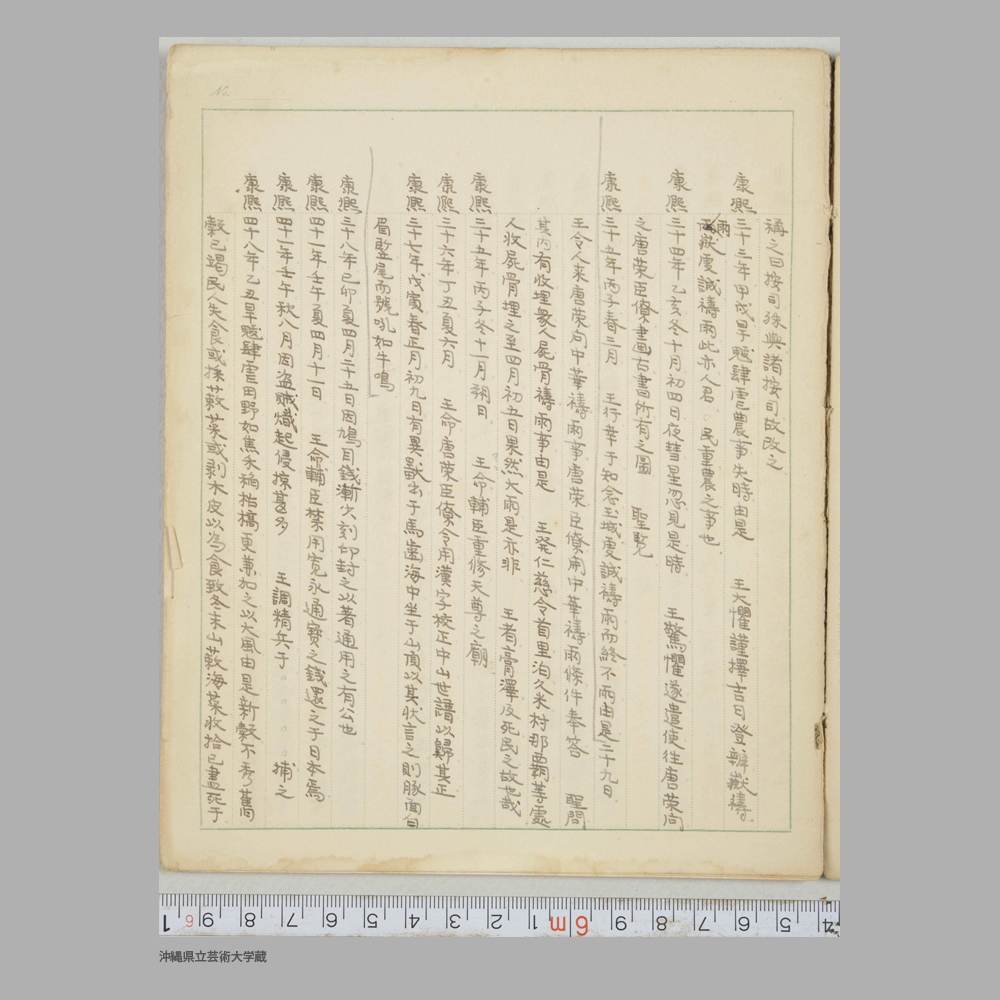 No.
稱之曰按司殊與諸按司故改之
康熙三十三年甲戌旱魃肆虐農事失時由是　王大懼謹擇吉日登辨嶽禱
雨
嶽虔誠禱雨此亦人君。民重農之事也
康熙三十四年乙亥冬十月初四日夜彗星忽見是時　王驚懼遂遣使往唐榮向
之唐榮臣僚書画古書所有之圖　聖覧
康熙三十五年丙子春三月　王行幸于知念玉城虔誠禱雨而終不雨由是二十九日
王令人来唐榮向中華禱雨事唐榮臣僚閘中華禱雨條件奉答　聖問
其内有收埋衆人屍骨禱雨事由是　王発仁慈令首里泊久米村那覇等處
人收屍骨埋之至四月初五日果然大雨是亦非　王者膏澤及死民之故也哉
康熙三十五年丙子冬十一月朔日　王命輔臣重修天尊之廟
康熙三十六年丁丑夏六月　王命唐榮臣僚令用漢字校正中山世譜以歸其正
康熙三十七年戊寅春正月初九日有異獸出于馬歯海中坐于山頂以其状言之則豚面白
眉竪尾而號吼如牛鳴
康熙三十八年己卯夏四月二十五日因鳩目錢漸少刻印封之以著通用之有公也
康熙四十一年壬午夏四月十一日　王命輔臣禁用寛永通寶之錢還之于日本焉
康熙四十一年壬午秋八月因盗賊熾起侵掠甚多　王調精兵于。。。。捕之
康熙四十八年乙丑旱魃肆虐田野如焦禾稲枯槁更兼加之以大風由是新穀不秀舊
穀已竭民人失食或採蔌菜或剥木皮以為食致冬末山蔌海菜收拾已盡死于
1 6 9 8 7 6 5 4 3 2 1 6m 9 8 7 6 5 4
沖縄県立芸術大学蔵